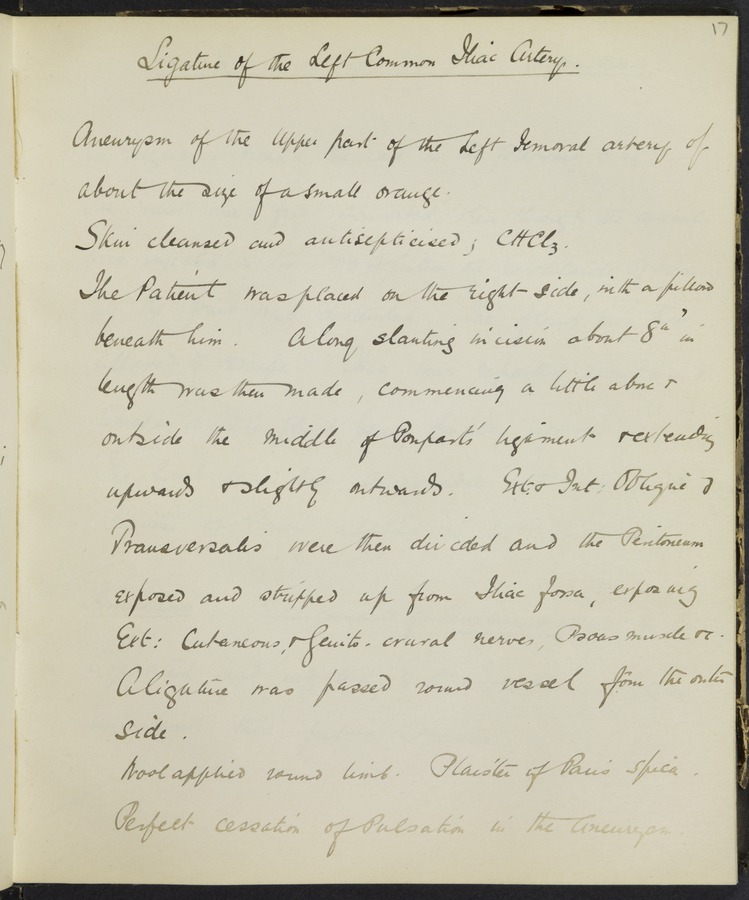 17
Ligature of the Left Common Iliac Artery.
Aneurysm of the Upper part of the Left Femoral artery of
about the size of a small orange.
Skin cleansed and antisepticised; CHCl3.
The Patient was placed on the right side, with a pillow
beneath him. A long slanting incision about 8" in
length was then made, commencing a little above &
outside the middle of Poupart's ligament & extending
upwards & slightly outwards. Ext: & Int: Oblique &
Transversalis were then divided and the Peritoneum
exposed and stripped up from Iliac fossa, exposing
Ext: Cutaneous, & Genito-crural nerves, Psoas muscle &c.
A Ligature was passed round vessel from the outer
side.
Wool applied round limb. Plaister of Paris Spica.
Perfect cessation of Pulsation in the Aneurysm.